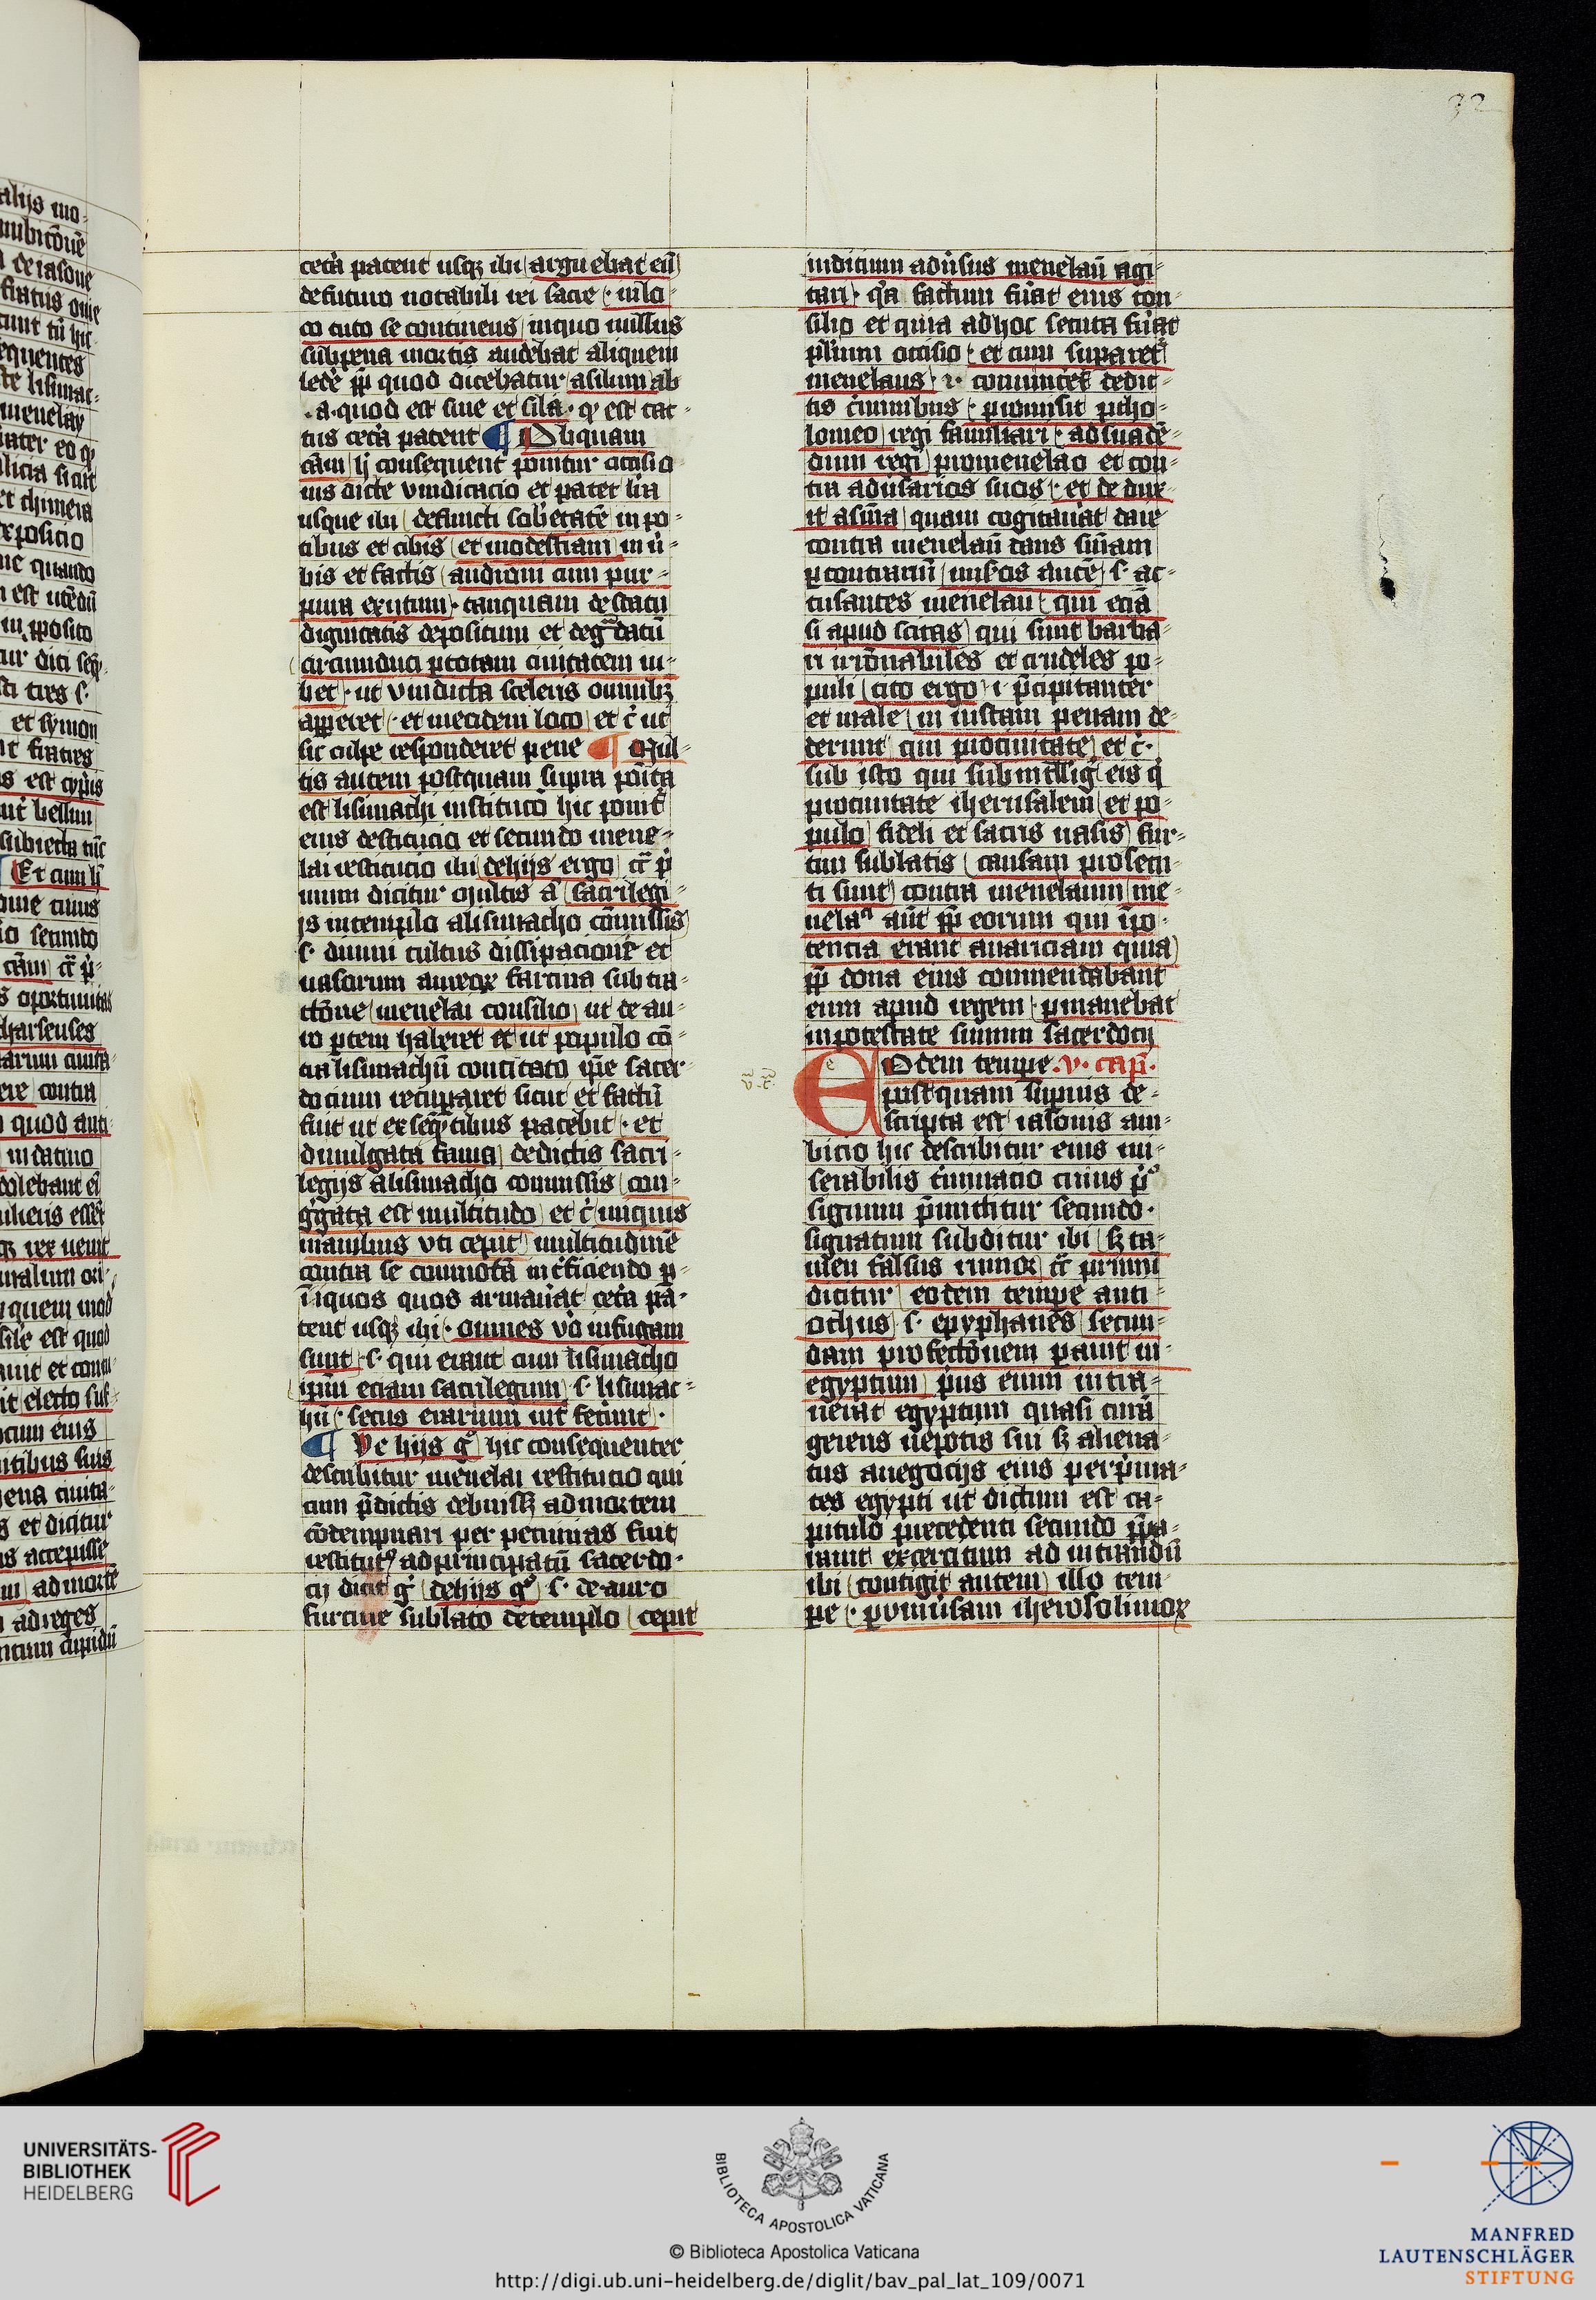 32
cetã patent usq; ibi arguebat eũ
de futuro notabili rei sacre · in lo-
co tuto se continens in quo nullus
sub pena mortis audebat aliquem
ledẽ ꝓp̃ quod dicebatur asilum ab
· a · quod est sine et sila · qd̾ est tac-
tus cetã patent ¶ Ob quam
cãm h̾ consequent̃ ponitur occisio-
nis dicte vindicacio et patet lrã
usque ibi defuncti sobrietatẽ in po-
tibus et cibis et modestiam in ũ-
bis et factis andronicum pur-
pura exutum · tanquam de statu
dignitatis depositum et degᵃdatũ
circumduci ꝑ totam ciuitatem iu-
bet · ut vindicta sceleris omnibꝫ
appareret · et in eodem loco et c̃ ut
sic culpe responderet pene ¶ Mul-
tis autem postquam supra põita
est lisimachi institucõ hic ponit̃
eius destitucio et secundo mene-
lai restitucio ibi de hijs ergo c̃c̃ p̾
mum dicitur Multis ã sacrilegi-
js in templo a lisimacho cõmissis
· s · diuini cultus dissipacionẽ et
uasorum aureoꝝ furtiua subtra-
ctõne menelai consilio ut de au-
ro ꝑtem haberet et ut populo cõ-
tra lisimachũ concitato ip̃e sacer-
docium recuperaret sicut et factũ
fuit ut ex seq̃ntibus patebit · et
diuulgata fama de dictis sacri-
legijs a lisimacho commissis con-
g̃gata est multitudo et c̃ iniquis
manibus vti cepit multitudinẽ
contra se commotã inteficiendo ꝑ
ĩiquos quos armauãt cetã pã-
tent usq; ibi · omnes ṽo in fugam
sunt · s · qui erant cum lisimacho
ip̃m etiam sacrilegum · s · lisimac-
hũ · secus erarium int̃fecerũt ·
¶ De hijs gͦ hic consequenter
describitur menelai restitucio qui
cum p̃dictis debuissꝫ ad mortem
cõdempnari per pecunias fuit
restitut⁹ ad principatũ sacerdo-
cij dicit g̾ de hijs gͦ · s · de auro
furtiue sublato de templo cepit
iudicium adũsus menelaũ agi-
tari · qᷓa factum fũat eius con-
silio et quia ad hoc secuta fũat
pl̃ium occisio · et cum suꝑaret̃
menelaus · i · conuincet̃ de dic-
tis c̃iminibus · promisit ptho-
lomeo regi familiari · ad suadẽ-
dum regi pro menelao et con-
tra adũsarios suos · et de dux-
it a sñia quam cogitauãt dare
contra menelaũ dans sñiam
ꝑ contrariũ miseris autẽ · s · ac-
cusantes menelaũ qui eciã
si apud scitas qui sunt barba-
ri irrõnabiles et crudeles po-
puli cito ergo · i · p̃cipitanter
et male in iustam penam de-
derunt qui pro ciuitate et c̃ ·
sub isto qui subintllig̃ eis q̾
pro ciuitate iherusalem et po-
pulo fideli et sacris uasis fur-
tim sublatis causam prosecu-
ti sunt contra menelaum me-
nelaᵘˢ aũt ꝓp̃ eorum qui ĩ po-
tencia erant auariciam quia
ꝓp̃ dona eius commendabant
eum apud regem · ꝑmanebat
in potestate summi sacerdocij
Eodem tempe · v · cap̃ ·
postquam supius de-
scripta est iasonis am-
bicio hic describitur eius mi-
serabilis t̃minacio cuius p̾
signum p̃mittitur secundo ·
signatum subditur ibi sꝫ ta-
men falsus rumor c̃c̃ primũ
dicitur eodem tempe anti-
ochus · s · epyphanes secun-
dam profectõnem parauit in
egyptum pᵒus enim intra-
uerat egyptum quasi curã
gerens nepotis sui sꝫ aliena-
tus a negocijs eius per prima-
tes egypti ut dictum est ca-
pitulo precedenti secundo p̃pa-
rauit excercitum ad intrandũ
ibi contigit autem illo tem-
pe · ꝑ vniũsam iherosolimoꝝ
UNIVERSITÄTS-
BIBLIOTHEK
HEIDELBERG
BIBLIOTECA APOSTOLICA VATICANA
© Biblioteca Apostolica Vaticana
http://digi.ub.uni-heidelberg.de/diglit/bav_pal_lat_109/0071
MANFRED
LAUTENSCHLÄGER
STIFTUNG